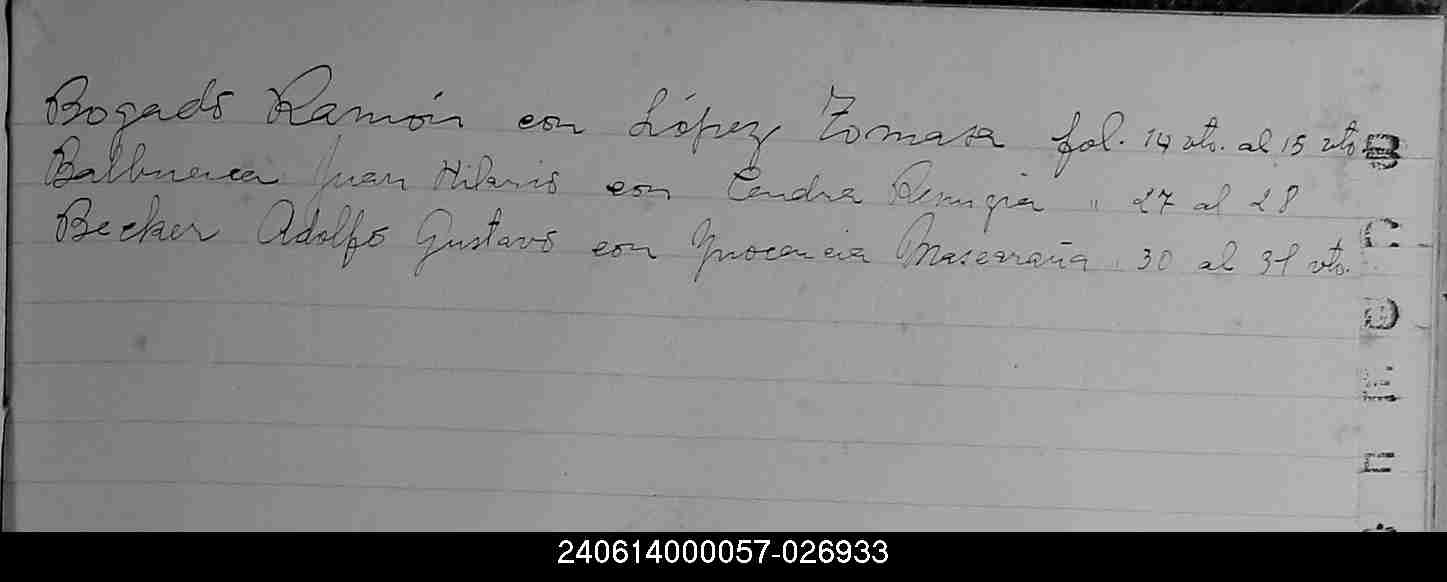 Bogado Ramón con López Tomasa fol. 14 vto. al 15 vto
Balbuena Juan Hilario con Candia Remigia " 27 al 28
Becker Adolfo Gustavo con Inocencia Mascaraña " 30 al 31 vto.
B
C
D
E
240614000057-026933